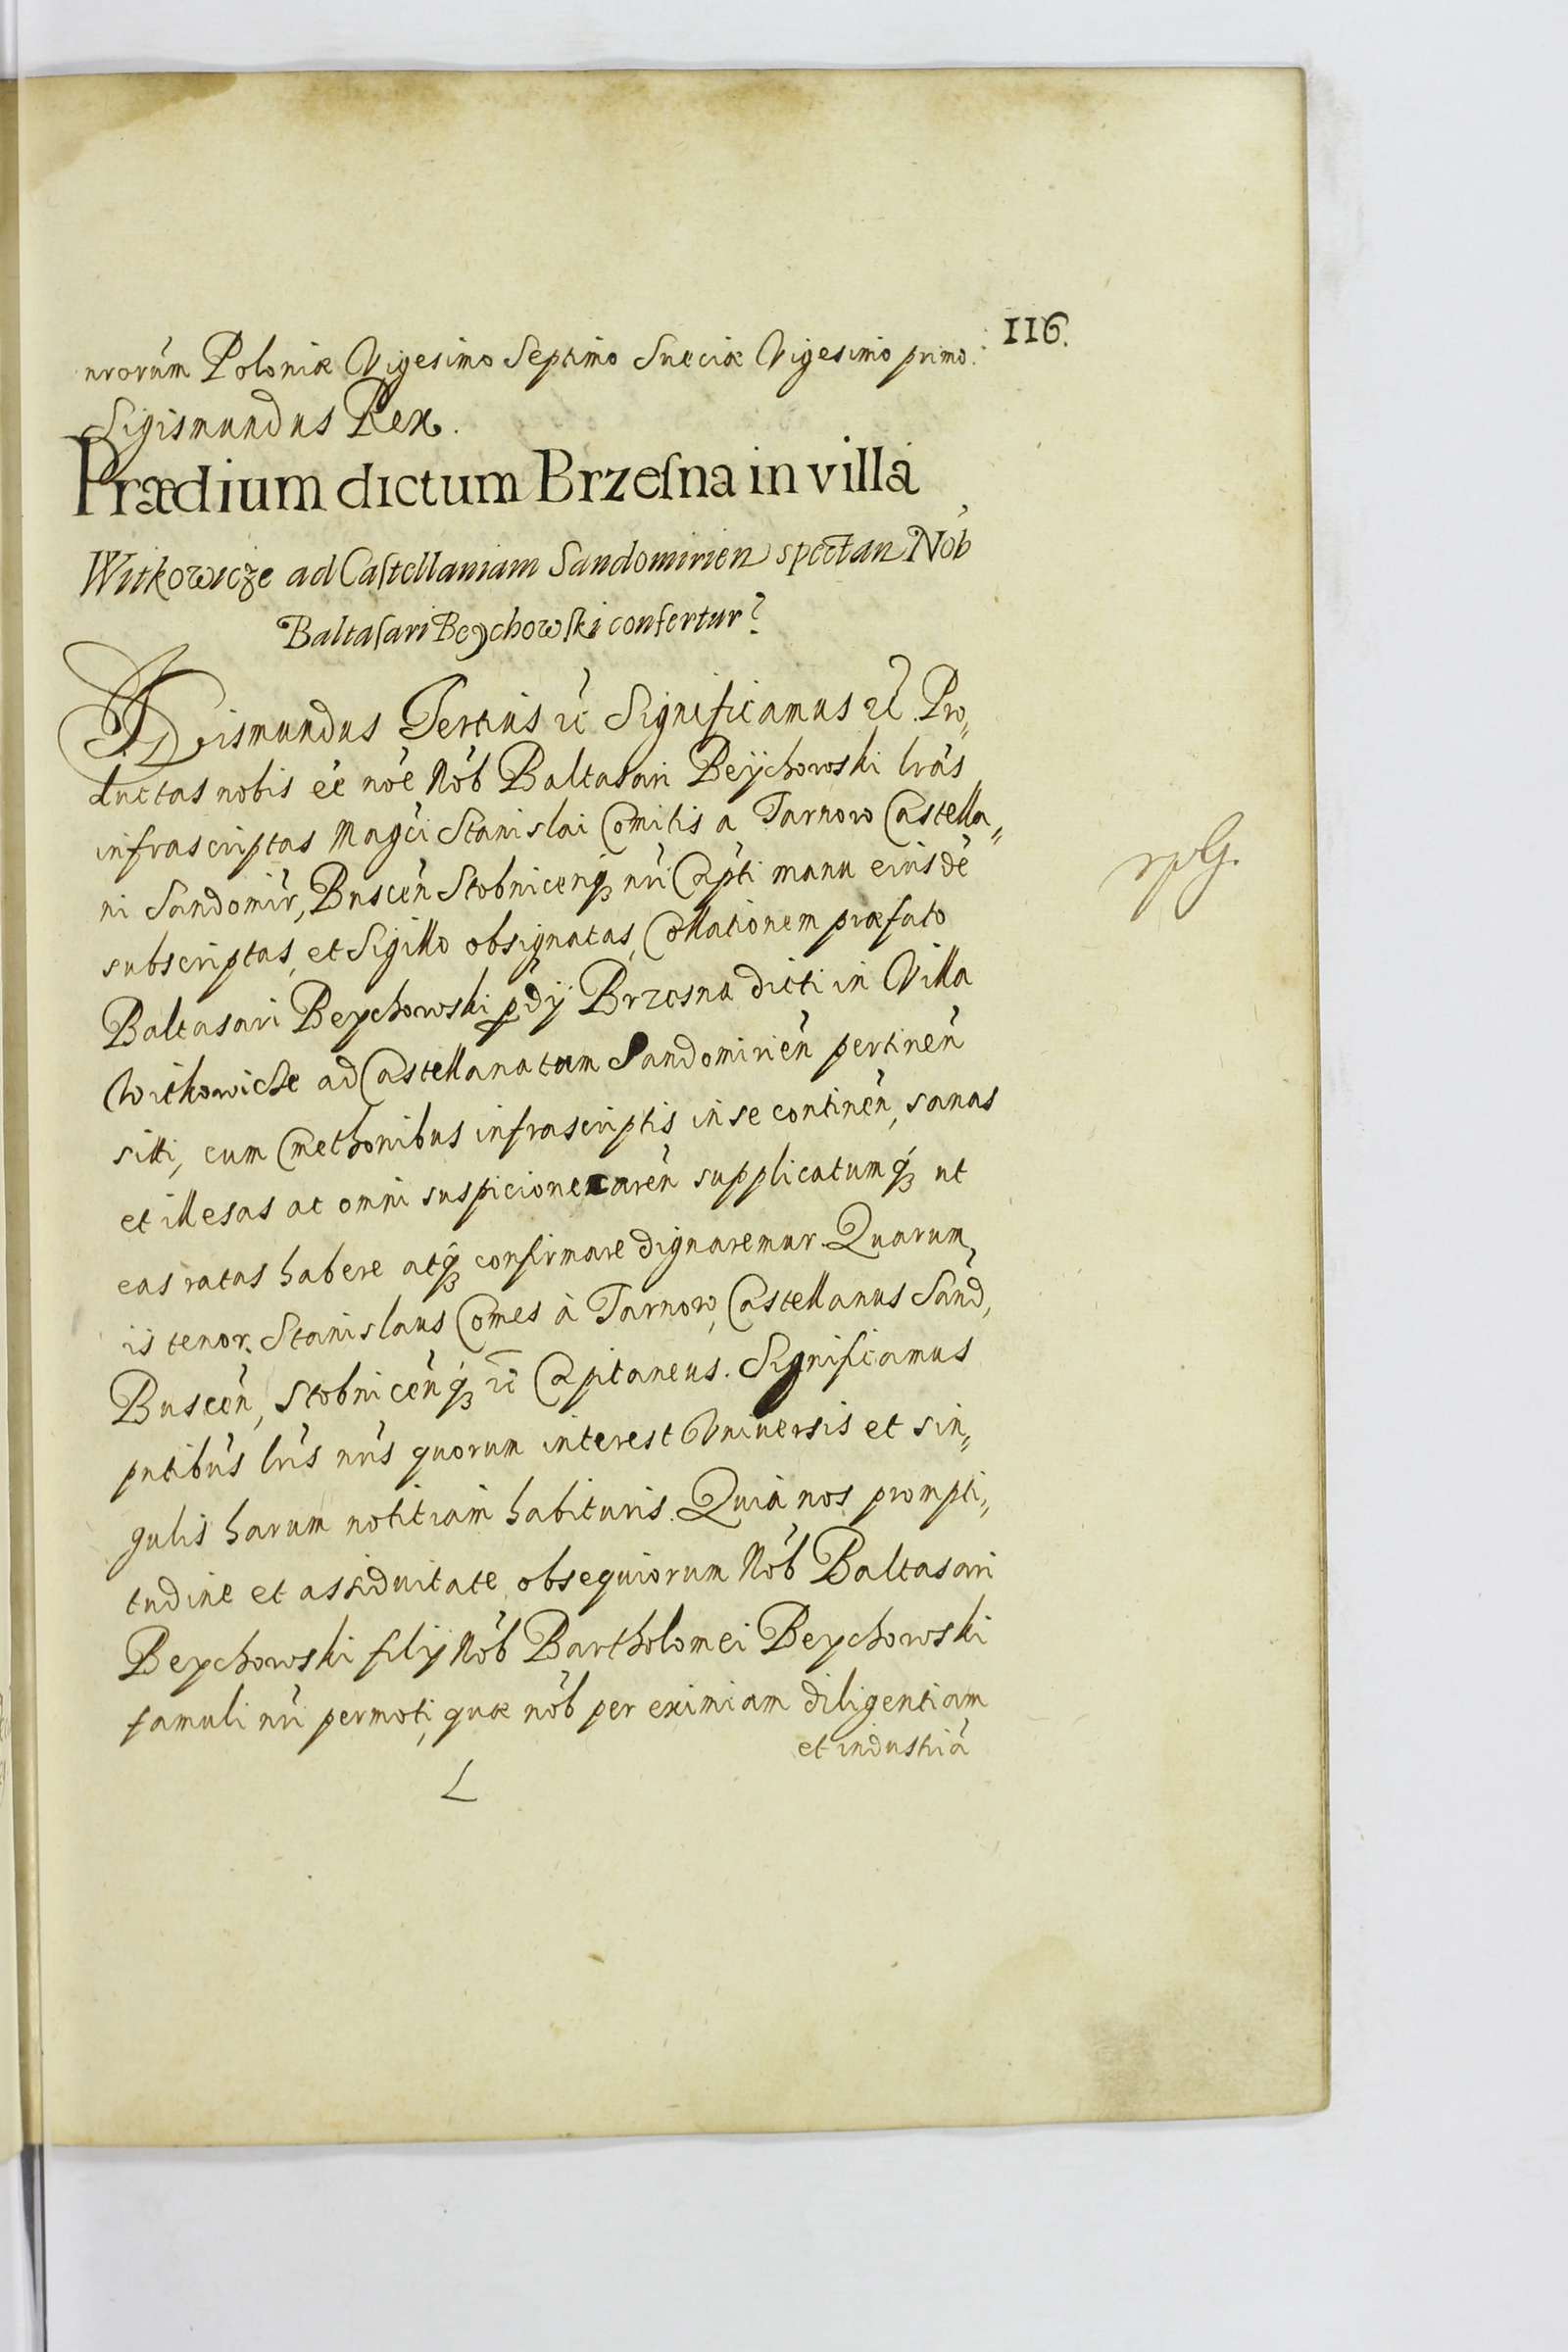 116.
nrorum Poloniæ Vigesimo Septimo Sueciæ Vigesimo primo.
Sigismundus Rex.
Prædium dictum Brzeſna in villa
Witkowicze ad Caſtellaniam Sandomirien spectan Nob
Baltaſari Beychowſki confertur
Sigismundus Tertius etc Significamus etc. Pro„
ductas nobis eẻ noẻ Nob Baltasari Beÿchowski lras
infrascriptas Magci Stanislai Comitis a Tarnow Castella„
ni Sandomir, Buscen Stobnicenq nri Capti manu eiusde
subscriptas, et Sigillo obsignatas, Collationem præfato
Baltasari Beychowski pdÿ Brzesna dicti in Villa
Witkowicze ad Castellanatum Sandomirien pertinen
sitti, cum Cmethonibus infrascriptis in se continen, sanas
et illesas ac omni suspicione caren supplicatumq ut
eas ratas habere atq confirmare dignaremur. Quarum
is tenor. Stanislaus Comes à Tarnow, Castellanus Sand,
Buscen, Stobnicenq etc Capitaneus. Significamus
pntibus lris nris quorum interest Vniuersis et sin„
gulis harum notitiam habituris. Quia nos prompti„
tudine et assiduitate obsequiorum Nob Baltasari
Beychowski filÿ Nob Bartholomei Beychowski
famuli nri permoti, quæ nob per eximiam diligentiam
et industria